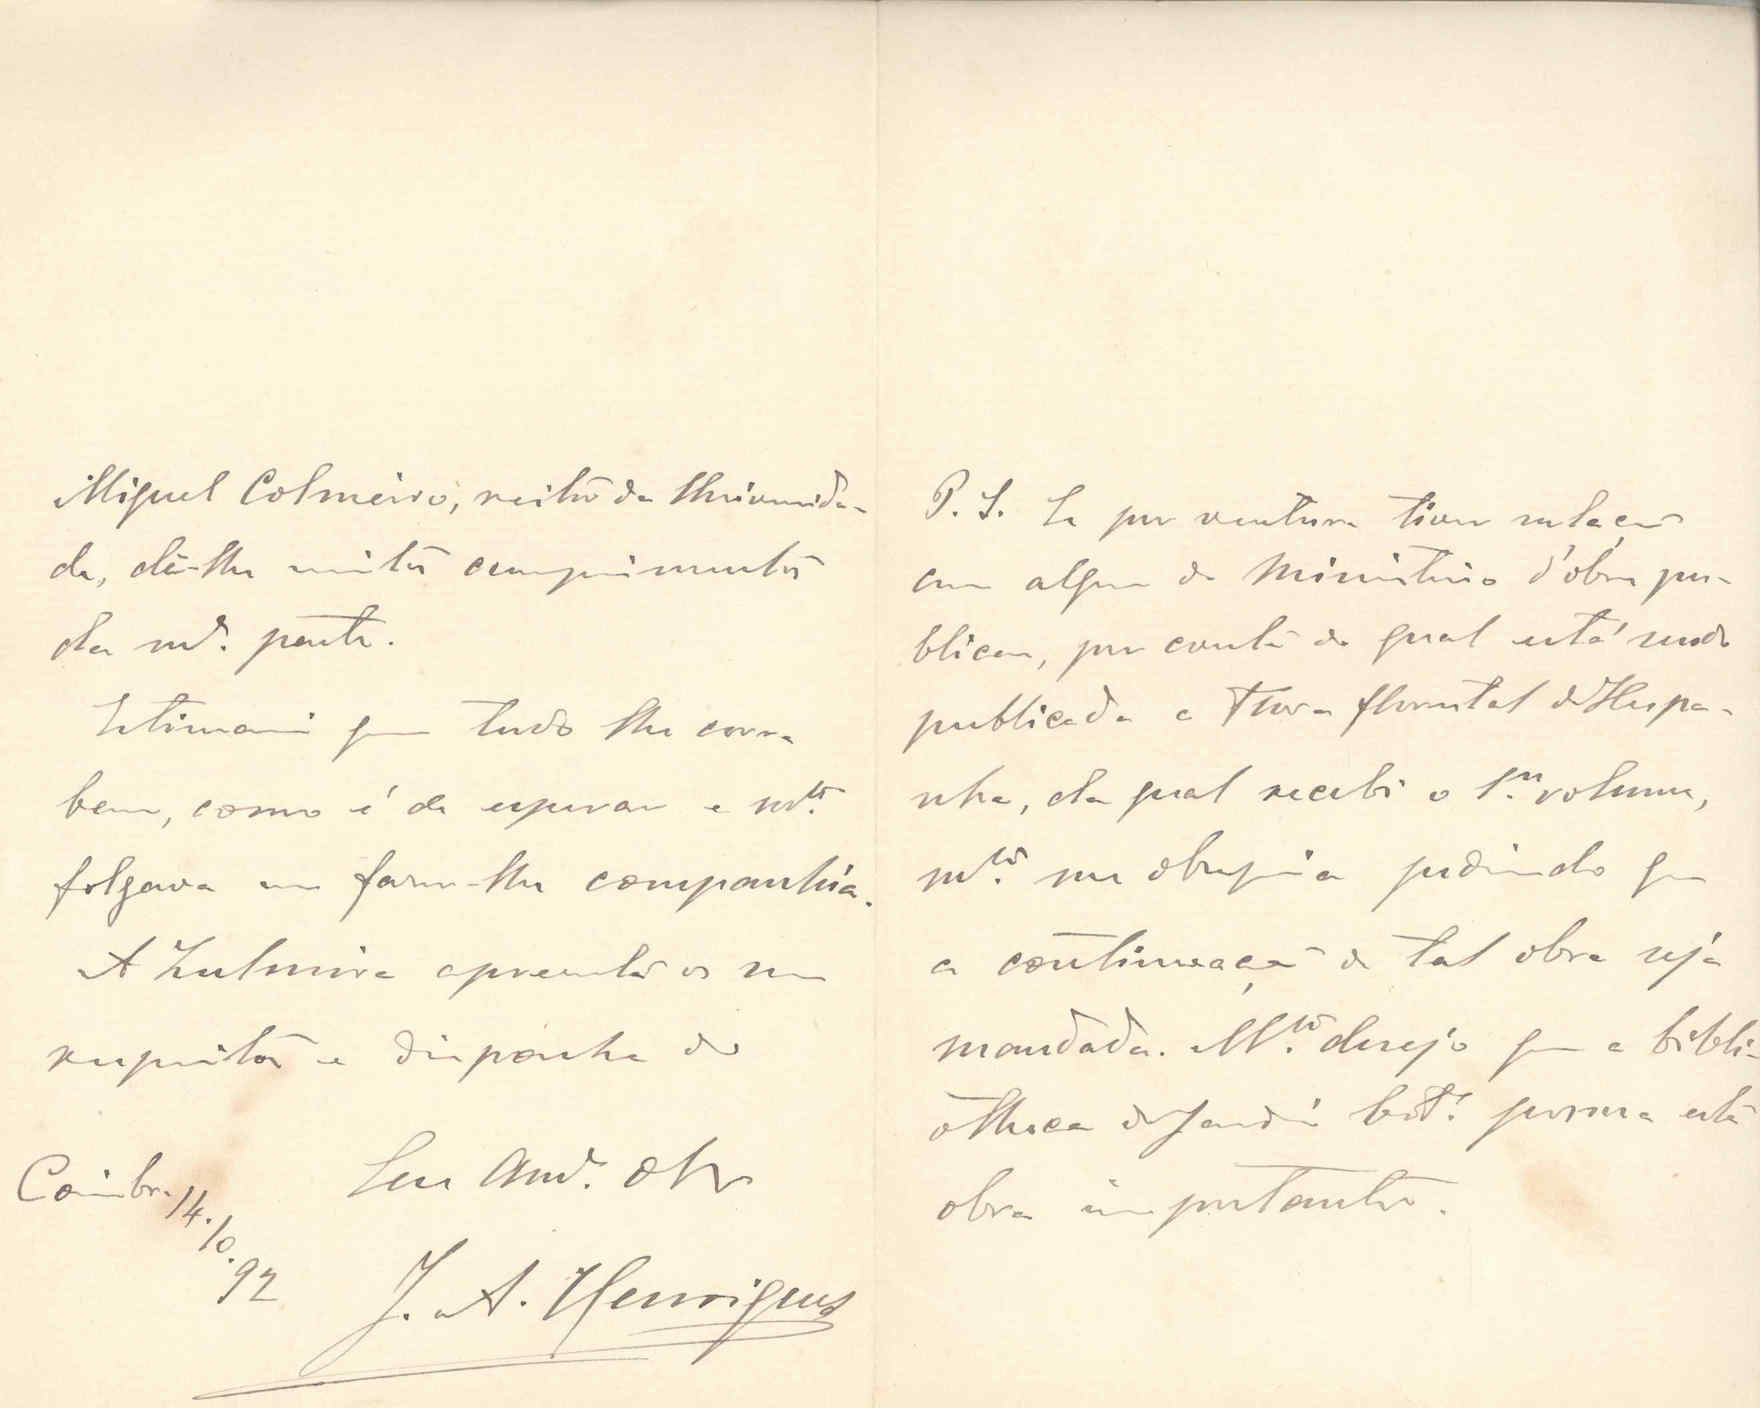 Miguel Colmeiro, reitor da Universida-
de, dê-lhe muitos cumprimentos
da mª. parte.
Estimarei que tudo lhe corra
bem, como é de esperar e mtº.
folgava em fazer-lhe companhia.
A Zulmira apresente os meus
respeitos e disponha do
Seu amº. obr
Coimbra 14.10.92
J. A. Henriques
P. S. Se por ventura tiver relações
com alguem do Ministerio d'obras pu-
blicas, por conta do qual está sendo
publicada a Flora florestal de Hespa-
nha, da qual recebi o 1.º volume,
mtº. me obsequia pedindo que
a continuação de tal obra seja
mandada. Mtº. desejo que a bibli-
otheca do Jardim bot. possua esta
obra importante.